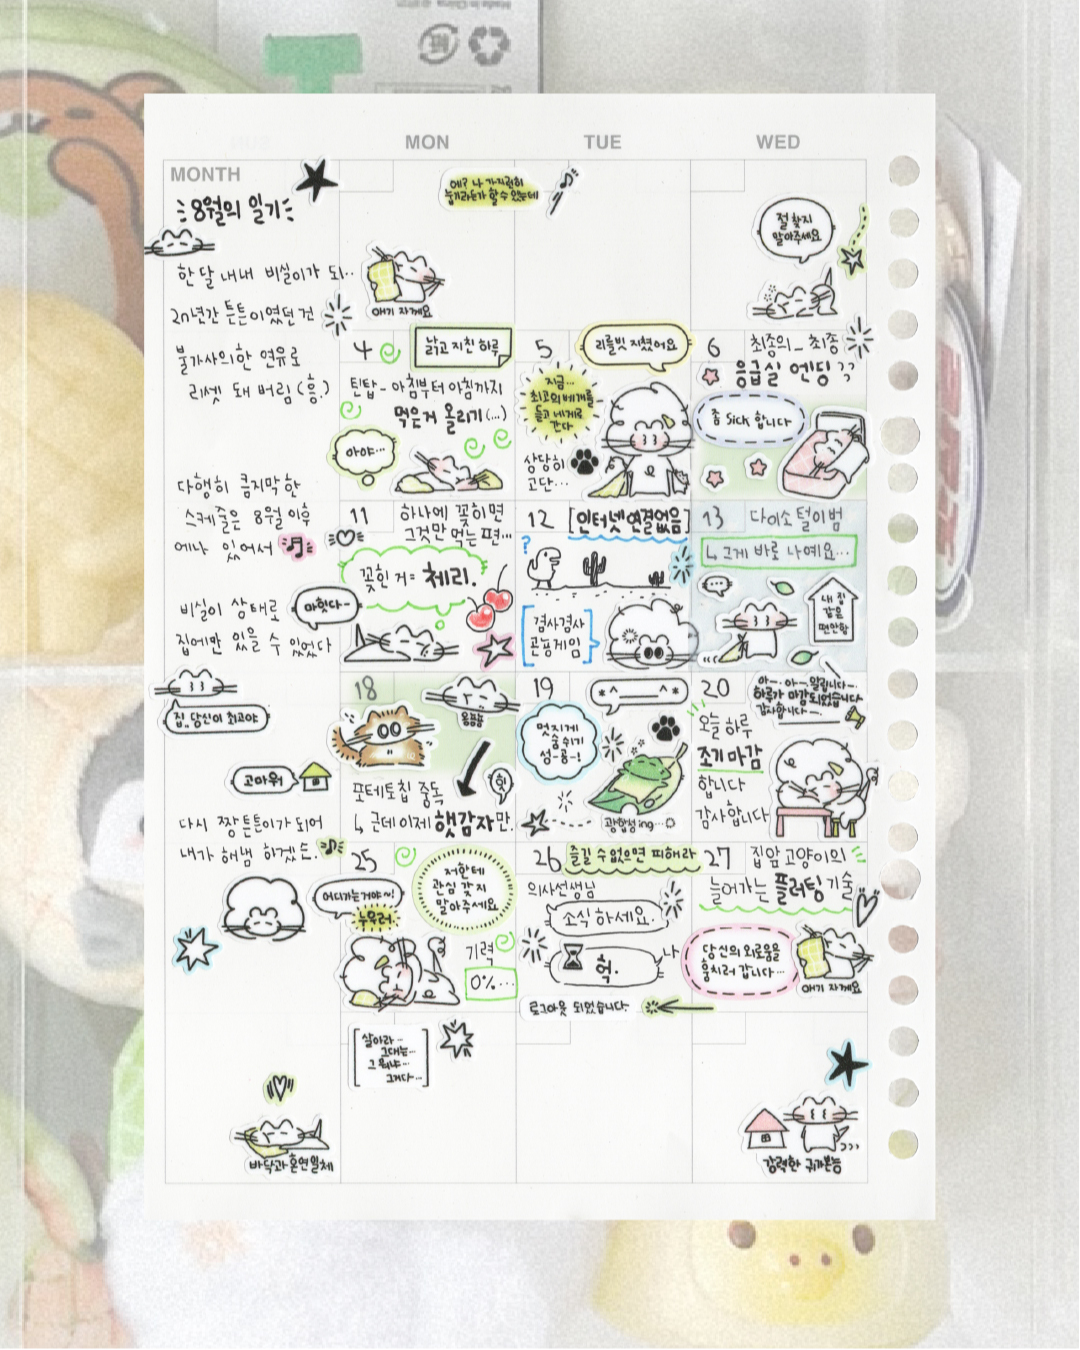 Made in China
MON
TUE
WED
MONTH
8월의 일기
한 달 내내 비실이가 되..
20년간 튼튼이였던 건
불가사의한 연유로
리셋 돼 버림 (흥.)
다행히 큼지막한
스케줄은 8월 이후
에나 있어서
비실이 상태로
집에만 있을 수 있었다
집, 당신이 최고야
고마워
다시 짱튼튼이가 되어
내가 해냄 하겠는.
에? 나 가지런히
눕기라든가 할 수 있는데
얘기 자께요
절 찾지
말아주세요
4
낡고 지친 하루
틴탑 - 아침부터 아침까지
먹은거 올리기 (...)
아야...
5
리틀빗 지쳤어요
지금...
최고의 베개를
들고 네게로
간다
상당히
고단...
6
최종의_최종
응급실 엔딩??
좀 Sick 합니다
11
하나에 꽂히면
그것만 먹는 편...
꽂힌 거 = 체리.
아휫다~
12
[인터넷 연결 없음]
?
겸사겸사
곤뇽게임
13
다이소 털이범
↳ 그게 바로 나예요...
내 집
같은
편안함
18
옴뇸뇸
포테토칩 중독
힛
↳ 근데 이제 햇감자만.
19
*^____^*
멋지게
숨 쉬기
성-공-!
광합성ing...
20
아-. 아-. 알립니다-.
하루가 마감되었습니다
감사합니다-.
오늘 하루
조기 마감
합니다
감사합니다
25
저한테
관심 갖지
말아주세요
어디가는거야~!
누우러.
기력
0%...
26
즐길 수 없으면 피해라
의사선생님
소식 하세요.
나
헉.
로그아웃 되었습니다.
27
집앞 고양이의
늘어가는 플러팅 기술
당신의 외로움을
훔치러 갑니다...
얘기 자께요
살아라...
그대는...
그 뭐냐...
그거다...
바닥과 혼연일체
강력한 귀가본능